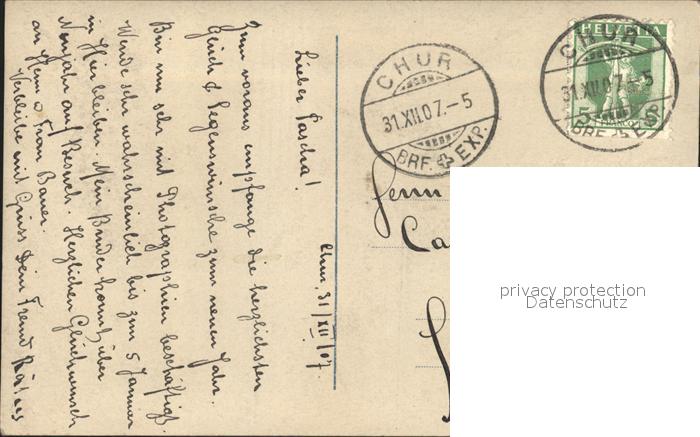 Chur, 31/XII/07.
Lieber Pascha!
Zum voraus empfange die herzlichsten
Glück & Segenswünsche zum neuen Jahr.
Bin nun sehr mit Photographien beschäftigt.
Werde sehr wahrscheinlich bis zum 5 Januar
in Hier bleiben. Mein Bruder kommt über
Neujahr auf Besuch. Herzlichen Glückwunsch
an Herrn & Frau Bauer.
Verbleibe mit Gruss Dein Freund
CHUR
31.XII.07.-5
BRF. EXP.
HELVETIA
5
CHUR
31.XII.07.-5
BRF. EXP.
Herrn
Ca
privacy protection
Datenschutz